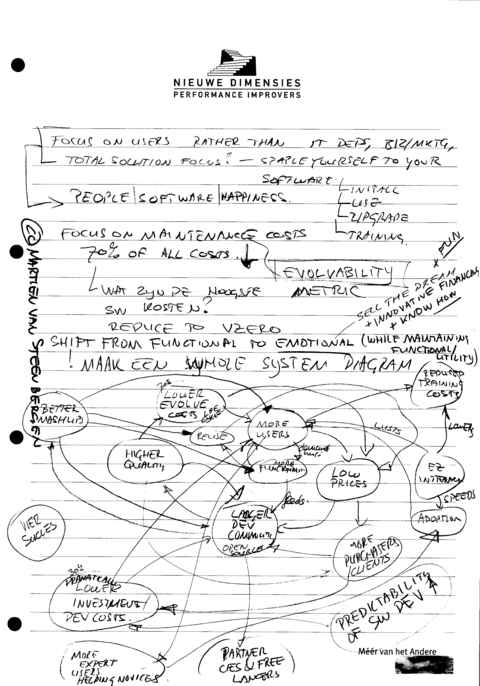 NIEUWE DIMENSIES
PERFORMANCE IMPROVERS
FOCUS ON USERS RATHER THAN IT DEPS, BIZ/MKTG,
TOTAL SOLUTION FOCUS? — STAPLE YOURSELF TO YOUR
SOFTWARE
INSTALL
USE
UPGRADE
TRAINING
PEOPLE | SOFTWARE | HAPPINESS
FOCUS ON MAINTENANCE COSTS
70% OF ALL COSTS
EVOLVABILITY
METRIC
WAT ZIJN DE HOOGSTE
SW KOSTEN?
REDUCE TO ZERO
SELL THE DREAM
+ INNOVATIVE FINANCING
+ KNOW HOW
+ FUN
SHIFT FROM FUNCTIONAL TO EMOTIONAL (WHILE MAINTAINING
FUNCTIONAL/
UTILITY)
! MAAK EEN WHOLE SYSTEM DIAGRAM
(CC) MARTIEN VAN STEENBERGEN
BETTER
MASHUPS
LOWER
EVOLVE
COSTS
REUSE
MORE
USERS
REDUCED
TRAINING
COSTS
HIGHER
QUALITY
MORE
FUNCTIONALITY
LOW
PRICES
LOWERS
EZ
SPEEDS
ADOPTION
feeds
LARGER
DEV
COMMUNITY
OPEN
VIER
SUCCES
MORE
PURCHASERS/
CLIENTS
30%
LOWER
INVESTMENT/
DEV COSTS
PREDICTABILITY
OF SW DEV
MORE
EXPERT
USERS
HELPING NOVICES
PARTNER
CIES & FREE
LANCERS
Méér van het Andere